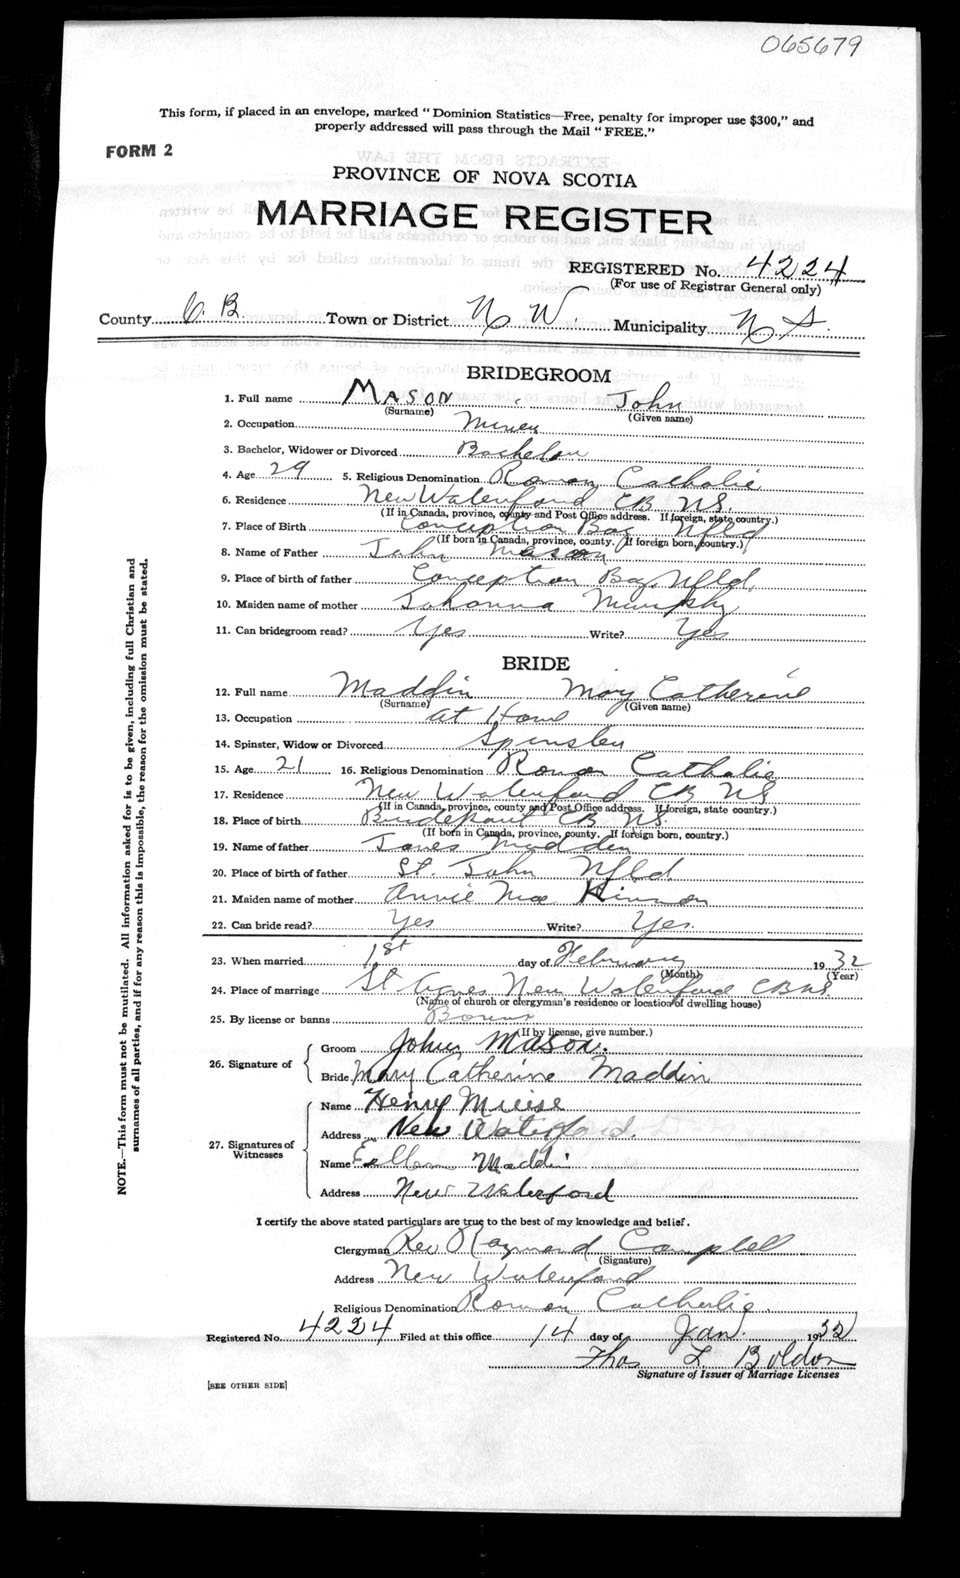 065679
This form, if placed in an envelope, marked "Dominion Statistics—Free, penalty for improper use $300," and
properly addressed will pass through the Mail "FREE."
FORM 2
PROVINCE OF NOVA SCOTIA
MARRIAGE REGISTER
REGISTERED No. 4224
(For use of Registrar General only)
County C. B. Town or District N W. Municipality N S.
BRIDEGROOM
1. Full name Mason John
(Surname) (Given name)
2. Occupation Miner
3. Bachelor, Widower or Divorced Bachelor
4. Age 29 5. Religious Denomination Roman Catholic
6. Residence New Waterford CB NS.
(If in Canada, province, county and Post Office address. If foreign, state country.)
7. Place of Birth Conception Bay Nfld
(If born in Canada, province, county. If foreign born, country.)
8. Name of Father John Mason
9. Place of birth of father Conception Bay. Nfld.
10. Maiden name of mother Johanna Murphy
11. Can bridegroom read? Yes Write? Yes
BRIDE
12. Full name Maddin Mary Catherine
(Surname) (Given name)
13. Occupation at Home
14. Spinster, Widow or Divorced Spinster
15. Age 21 16. Religious Denomination Roman Catholic
17. Residence New Waterford CB NS
(If in Canada, province, county and Post Office address. If foreign, state country.)
18. Place of birth Bridgeport CB NS.
(If born in Canada, province, county. If foreign born, country.)
19. Name of father James Madden
20. Place of birth of father St. John Nfld
21. Maiden name of mother Annie Mac Kinnon
22. Can bride read? Yes Write? Yes.
23. When married 1st day of February 1932
(Month) (Year)
24. Place of marriage St Agnes New Waterford CB NS.
(Name of church or clergyman's residence or location of dwelling house)
25. By license or banns Banns
(If by license, give number.)
26. Signature of
Groom John Mason.
Bride Mary Catherine Maddin
27. Signatures of Witnesses
Name Henry
Address New Waterford.
Name Maddin
Address New Waterford
I certify the above stated particulars are true to the best of my knowledge and belief.
Clergyman Rev Raymond Campbell
(Signature)
Address New Waterford
Religious Denomination Roman Catholic
Registered No. 4224 Filed at this office 14 day of Jan. 1932
Thos L. Boldon
Signature of Issuer of Marriage Licenses
[SEE OTHER SIDE]
NOTE.—This form must not be mutilated. All information asked for is to be given, including full Christian and
surnames of all parties, and if for any reason this is impossible, the reason for the omission must be stated.